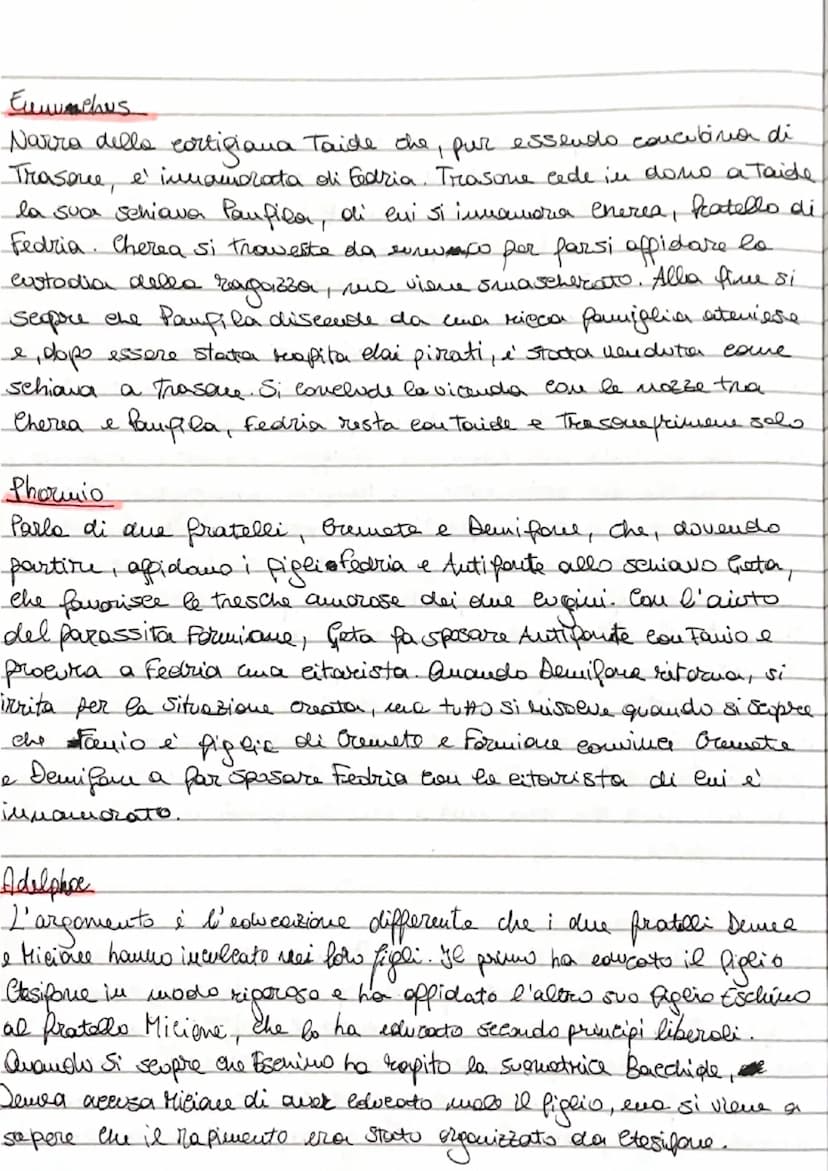 Eunuchus
Narra della cortigiana Taide che, pur essendo concubina di
Trasone, e' innamorata di Fedria. Trasone cede in dono a Taide
la sua schiava Panfila, di cui si innamora Cherea, fratello di
Fedria. Cherea si traveste da eunuco per farsi affidare la
custodia della ragazza, ma viene smascherato. Alla fine si
scopre che Panfila discende da una ricca famiglia ateniese
e, dopo essere stata rapita dai pirati, è stata venduta come
schiava a Trasone. Si conclude la vicenda con le nozze tra
Cherea e Panfila, Fedria resta con Taide e Trasone rimane solo
Phormio
Parla di due fratelli, Cremete e Demifone, che, dovendo
partire, affidano i figli Fedria e Antifonte allo schiavo Geta,
che favorisce le tresche amorose dei due cugini. Con l'aiuto
del parassita Formione, Geta fa sposare Antifonte con Fanio e
procura a Fedria una citarista. Quando Demifone ritorna, si
irrita per la situazione creata, ma tutto si risolve quando si scopre
che Fanio e' figlia di Cremete e Formione convince Cremete
e Demifone a far sposare Fedria con la citarista di cui e'
innamorato.
Adelphoe
L'argomento è l'educazione differente che i due fratelli Demea
e Micione hanno inculcato nei loro figli. Il primo ha educato il figlio
Ctesifone in modo rigoroso e ha affidato l'altro suo figlio Eschino
al fratello Micione, che lo ha educato secondo principi liberali.
Quando si scopre che Eschino ha rapito la suonatrice Bacchide,
Demea accusa Micione di aver educato male il figlio, ma si viene a
sapere che il rapimento era stato organizzato da Ctesifone.